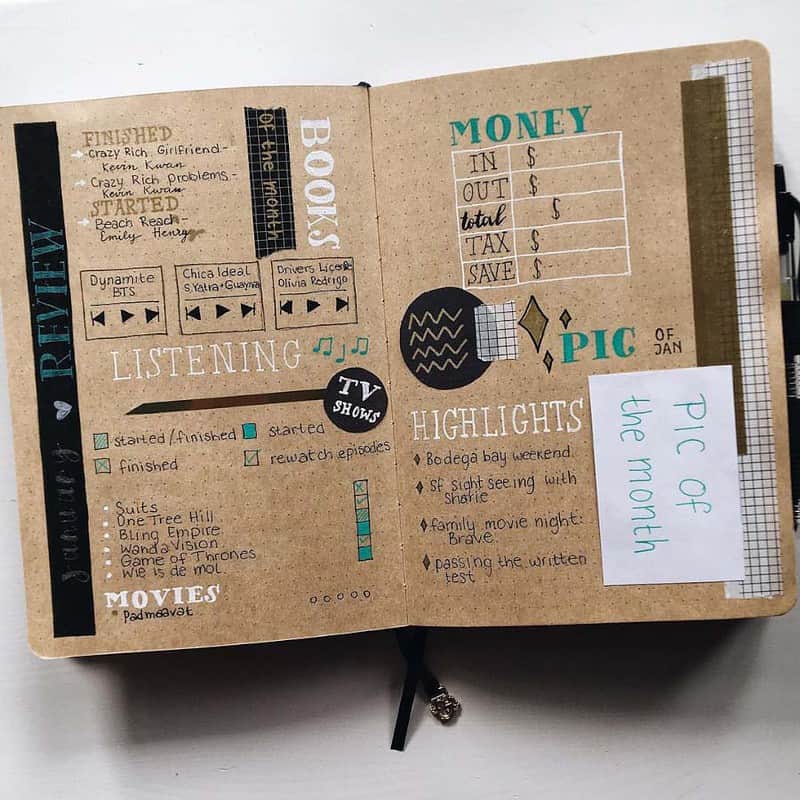 January REVIEW
FINISHED
Crazy Rich Girlfriend -
Kevin Kwan
Crazy Rich problems -
Kevin Kwan
STARTED
Beach Reach -
Emily Henry
BOOKS
of the month
Dynamite
BTS
Chica Ideal
S.Yatra + Guayna
Drivers License
Olivia Rodrigo
LISTENING
TV
SHOWS
started/finished
started
finished
rewatch episodes
Suits
One Tree Hill
Bling Empire
WandaVision
Game of Thrones
Wie is de mol
MOVIES
Padmaavat
MONEY
IN $
OUT $
total $
TAX $
SAVE $
PIC OF
JAN
HIGHLIGHTS
Bodega bay weekend
SF sight seeing with
Sharie
family movie night:
Brave
passing the written
test
pic of
the month